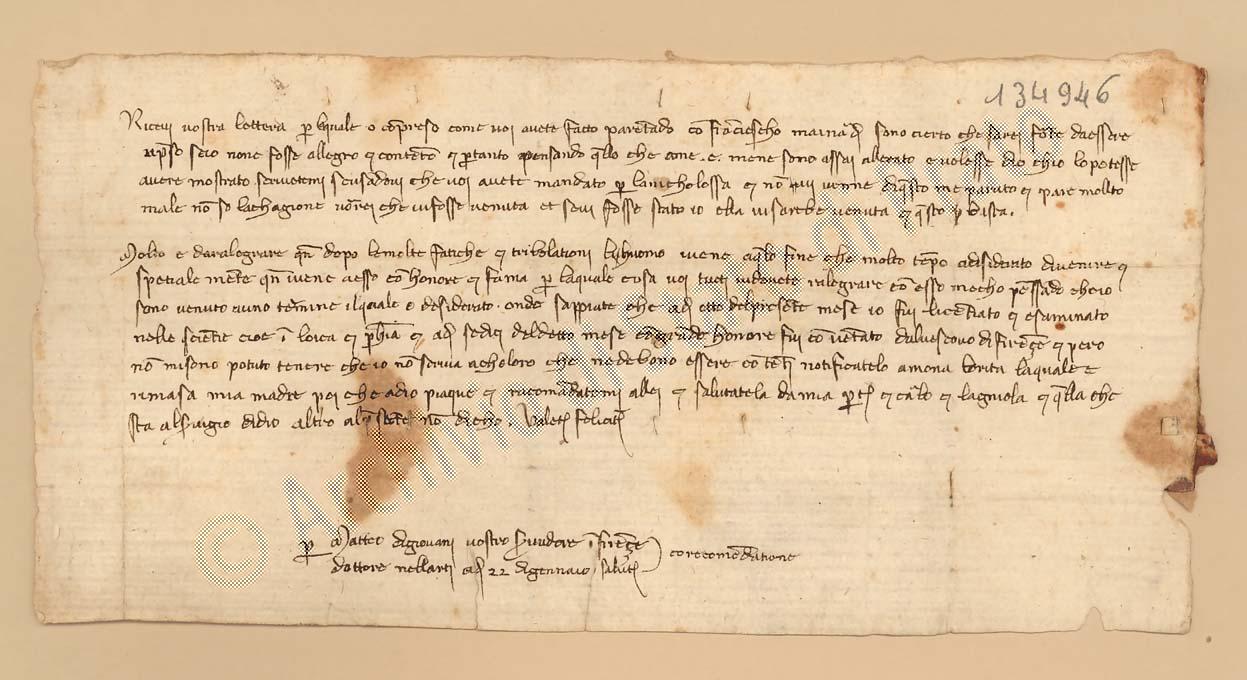 134946
Ricevi vostra lettera p̄ laquale o cōpreso come voi avete fatto parētado cō franciescho mainardi sono cierto che sarei forte daessere
ripreso seio none fosse allegro e contento e p̄tanto pensando quello che cone. e. mene sono assai allegrato e volesse dio chio lo potesse
avere mostrato servetemi scusadovi che voi avete mandato p̄ la nicholossa e nō vi venne diquesto me paruto e pare molto
male nō so lachagione vorei che vifosse venuta et sevi fosse stato io ella vi sarebe venuta e questo p̄ basta.
Molto e daralegrare qn̄ dopo lemolte fatiche e tribolationi lhuomo viene aquello fine che molto tēpo adisiderato divenire e
spetiale mēte qn̄ viene aesso cō honore e fama p̄ laquale cosa voi tutti vidovete ralegrare cō esso mecho pēssādo chio
sono venuto auno termine ilquale o desiderato. onde sappiate che adi otto delpresente mese io fui licentiato e esaminato
nelle scientie cioe ī loica e ph̄ia e adi sedici deldetto mese cō grande honore fui cō vētato dalvescovo difirenze e pero
nō misono potuto tenere che io nō scriva acholoro che nedebono essere cō tēti notificatelo amona berita laquale e
rimasa mia madre poi che adio piaque e racomādatemi allei e salutatela damia parte e carlo e lagniola e quella che
sta alservigio didio altro alpresente nō dicho. Valete feliciter
p̄ Matteo digiovani vostro servidore ī firenze
dottore nellarti adi 22 digennaio, salute
co recomēdatione
© Archivio di Stato di Prato